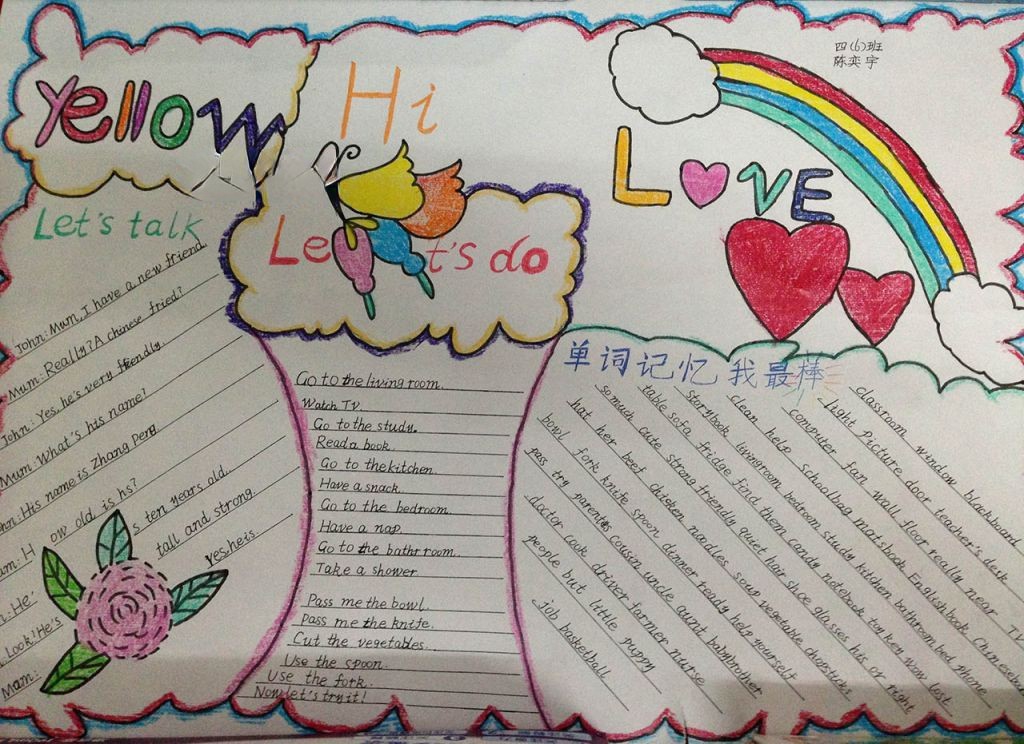 Yellow
Hi
四(6)班
陈奕宇
LOVE
Let's talk
John: Mum, I have a new friend.
Mum: Really? A chinese fried?
John: Yes, he's very friendly.
Mum: What's his name?
John: His name is Zhang Peng.
Mum: How old is hs?
John: He's ten years old.
Look! He's tall and strong.
Mam: yes, he is.
Let's do
Go to the living room.
Watch TV.
Go to the study.
Read a book.
Go to the kitchen.
Have a snack.
Go to the bedroom.
Have a nap.
Go to the bathroom.
Take a shower
Pass me the bowl.
pass me the knife.
Cut the vegetables.
Use the spoon.
Use the fork.
Now let's try it!
单词记忆我最棒
classroom window blackboard
light picture door teacher's desk
computer fan wall floor really near TV
clean help schoolbag maths book English book Chinese book
storybook living room bedroom study kitchen bathroom bed phone
table sofa fridge find them candy notebook toy key wow lost
so much cute strong friendly quiet hair shoe glasses his or right
hat her beef chicken noodles soup vegetable chopsticks
bowl fork knife spoon dinner ready help yourself
pass try parents cousin uncle aunt babybrother
doctor cook driver farmer nurse
people but little puppy
job basketball